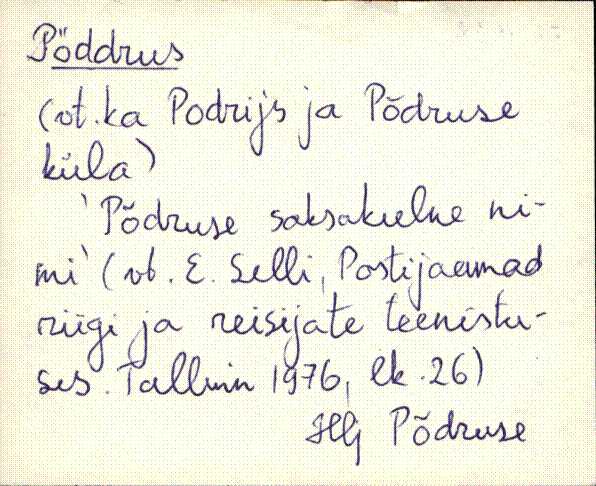 Pöddrus
(vt. ka Podrijs ja Põdruse
küla)
'Põdruse saksakeelne ni-
mi' (vt. E. Selli, Postijaamad
riigi ja reisijate teenistu-
ses. Tallinn 1976, lk. 26)
Hlj Põdruse